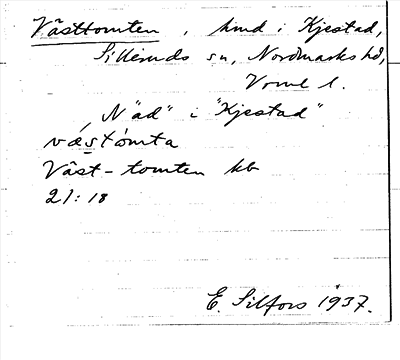 Västtomten, hmd i Kjestad,
Silleruds sn, Nordmarks hd,
Vrml l.
"Näd" i "Kjestad".
væstómta
Väst-tomten kb
21:18
E. Silfors 1937.